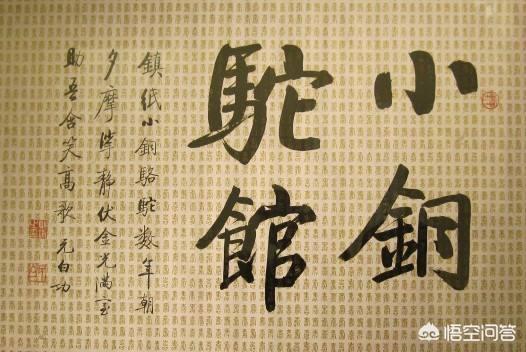 小銅
駝館
鎮紙小銅駱駝數年朝
夕摩挲靜伏金光滿室
助吾含笑高歌 元白功
悟空问答